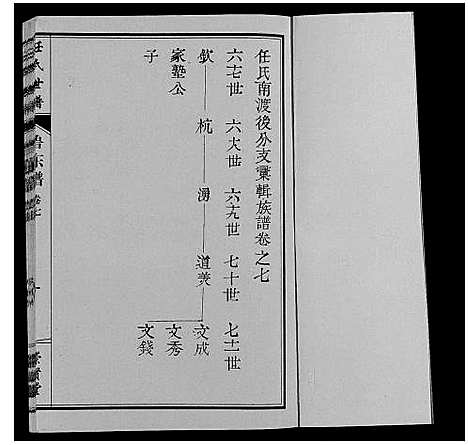 任氏南渡後分支彙輯族譜卷之七
六七世 六大世 六九世 七十世 七一世
欽 杭 湧 道美 文成
家塾公 文秀
子 文錢
任氏世譜
卷七